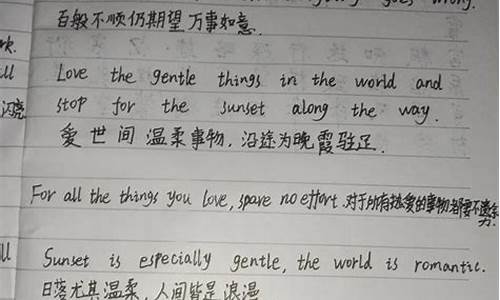 goes wrong.
百般不顺仍期望万事如意.
Love the gentle things in the world and
stop for the sunset along the way.
爱世间温柔事物，沿途为晚霞驻足.
For all the things you love, spare no effort.对于所有热爱的事物都要不遗余力.
Sunset is especially gentle, the world is romantic.
日落尤其温柔，人间皆是浪漫